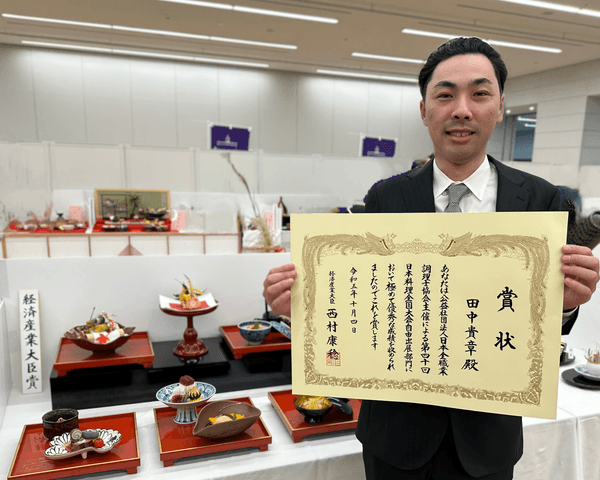 賞状
田中貴章殿
あなたは公益社団法人日本全職業
調理士協会主催による第四十回
日本料理全国大会自由出展部門に
おいて極めて優秀な成績を收められ
ましたのでこれを賞します
令和五年十月四日
経済産業大臣 西村康稔
経済産業大臣賞